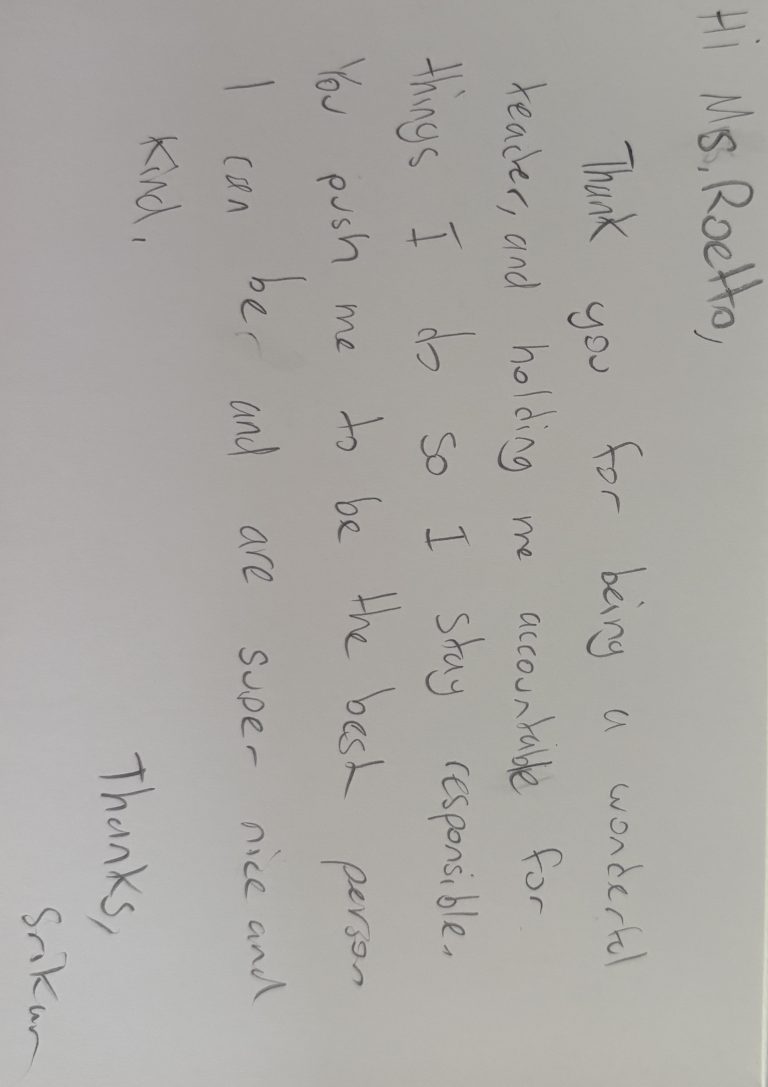 Hi Ms. Roetto,
Thank you for being a wonderful
teacher, and holding me accountable for
things I do so I stay responsible.
You push me to be the best person
I can be, and are super nice and
kind.
Thanks,
Srikar